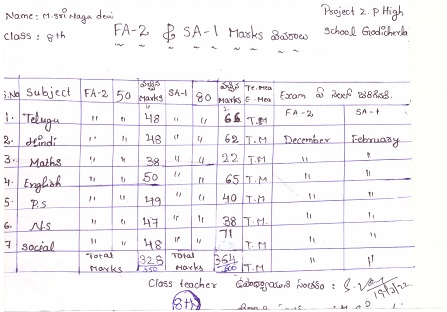 Name: M. Sri Naga devi Project Z. P High
Class : 8th FA-2 & SA-1 Marks వివరాలు School Gadicherla
S.No Subject FA-2 50 వచ్చిన Marks SA-1 80 వచ్చిన Marks Te.Mea E-Mea Exam ఏ నెలలో జరిగినది.
FA-2 SA-1
1. Telugu " " 48 " " 66 T.M
2. Hindi " " 48 " " 62 T.M December February
3. Maths " " 38 " " 22 T.M " "
4. English " " 50 " " 65 T.M " "
5. P.S " " 49 " " 40 T.M " "
6. N.S " " 47 " " 38 T.M. " "
7 Social " " 48 " " 71 T.M " "
Total Marks 328 350 Total Marks 364 T.M " "
Class teacher
8th